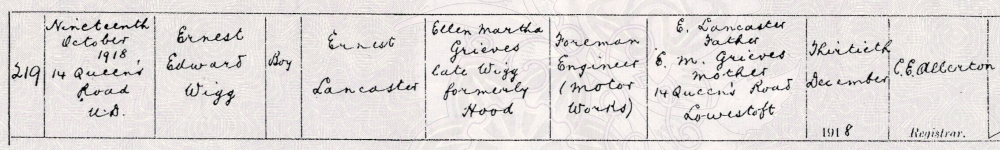 219
Nineteenth
October
1918
14 Queen's
Road
U.D.
Ernest
Edward
Wigg
Boy
Ernest
Lancaster
Ellen Martha
Grieves
late Wigg
formerly
Hood
Foreman
Engineer
(Motor
Works)
E. Lancaster
Father
E. M. Grieves
Mother
14 Queen's Road
Lowestoft
Thirtieth
December
1918
C. E. Allerton
Registrar.